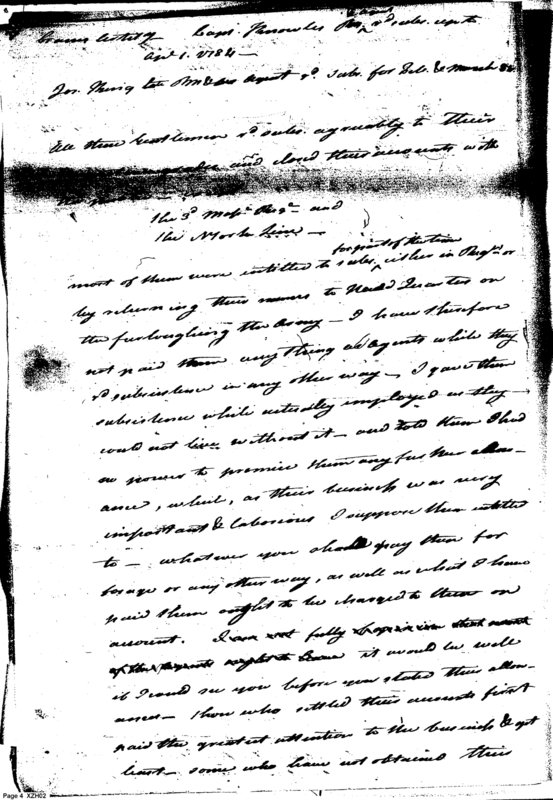 Capt Knowles
Apl 1. 1784 —
Agent rd. Subs. for Feb. & March
All these Gentlemen rd. subs. agreeably to their
and closed their accounts with
the 3d Massts. Regt. and
the N York Line —
for part of the time
most of them were entitled to subs. either in Regts. or
by returning their names to Head Quarters on
the furloughing the Army — I have therefore
not paid them any thing as Agents while they
rd subsistence in any other way — I gave them
subsistence while actually employed as they
could not live without it — and told them I had
no power to promise them any further allow-
ance, but, as their business was very
important & laborious I suppose them entitled
to — whatever you should pay them for
forage or any other way, as well as what I have
paid them ought to be charged to them on
account. I am not fully
it would be well
if I could see you before you stated their allow-
ances — those who settled their accounts first
paid the greatest attention to the business & got
least — some who have not obtained their
Page 4 XZH02